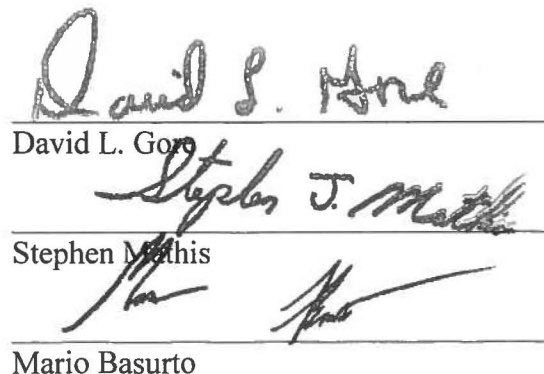 David L. Gore
David L. Gore
Stephen J. Mathis
Stephen Mathis
Mario Basurto